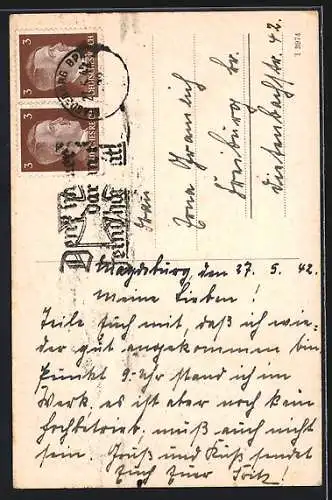 3
3
DEUTSCHES REICH
DEUTSCHES REICH
Frau
Freiburg Br.
42.
1 3974
Magdeburg, den 27. 5. 42.
Meine Lieben!
Teile Euch mit, daß ich wie-
der gut angekommen bin
Punkt 9-Uhr stand ich im
Werk, es ist aber noch kein
Hochbetrieb. muß auch nicht
sein. Gruß und Kuß sendet
Euch Euer Fritz!